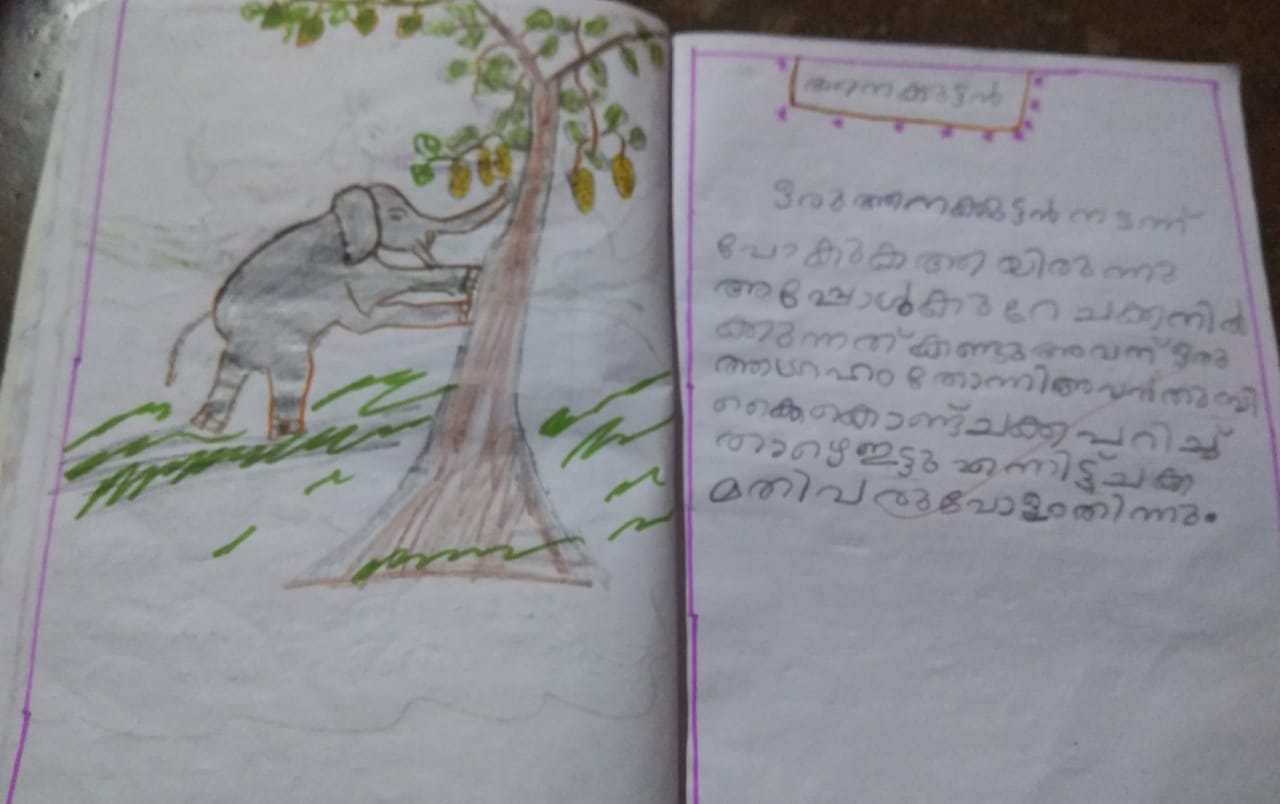 ആനക്കുട്ടൻ
ഒരു ആനക്കുട്ടൻ നടന്ന്
പോകുകആയിരുന്നു
അപ്പോൾ കുറേ ചക്ക നിൽ
ക്കുന്നത് കണ്ടു അവന് ഒരു
ആഗ്രഹം തോന്നി അവൻ തുമ്പി
കൈകൊണ്ട് ചക്ക പറിച്ച്
താഴെ ഇട്ടു എന്നിട്ട് ചക്ക
മതിവരുവോളം തിന്നു.